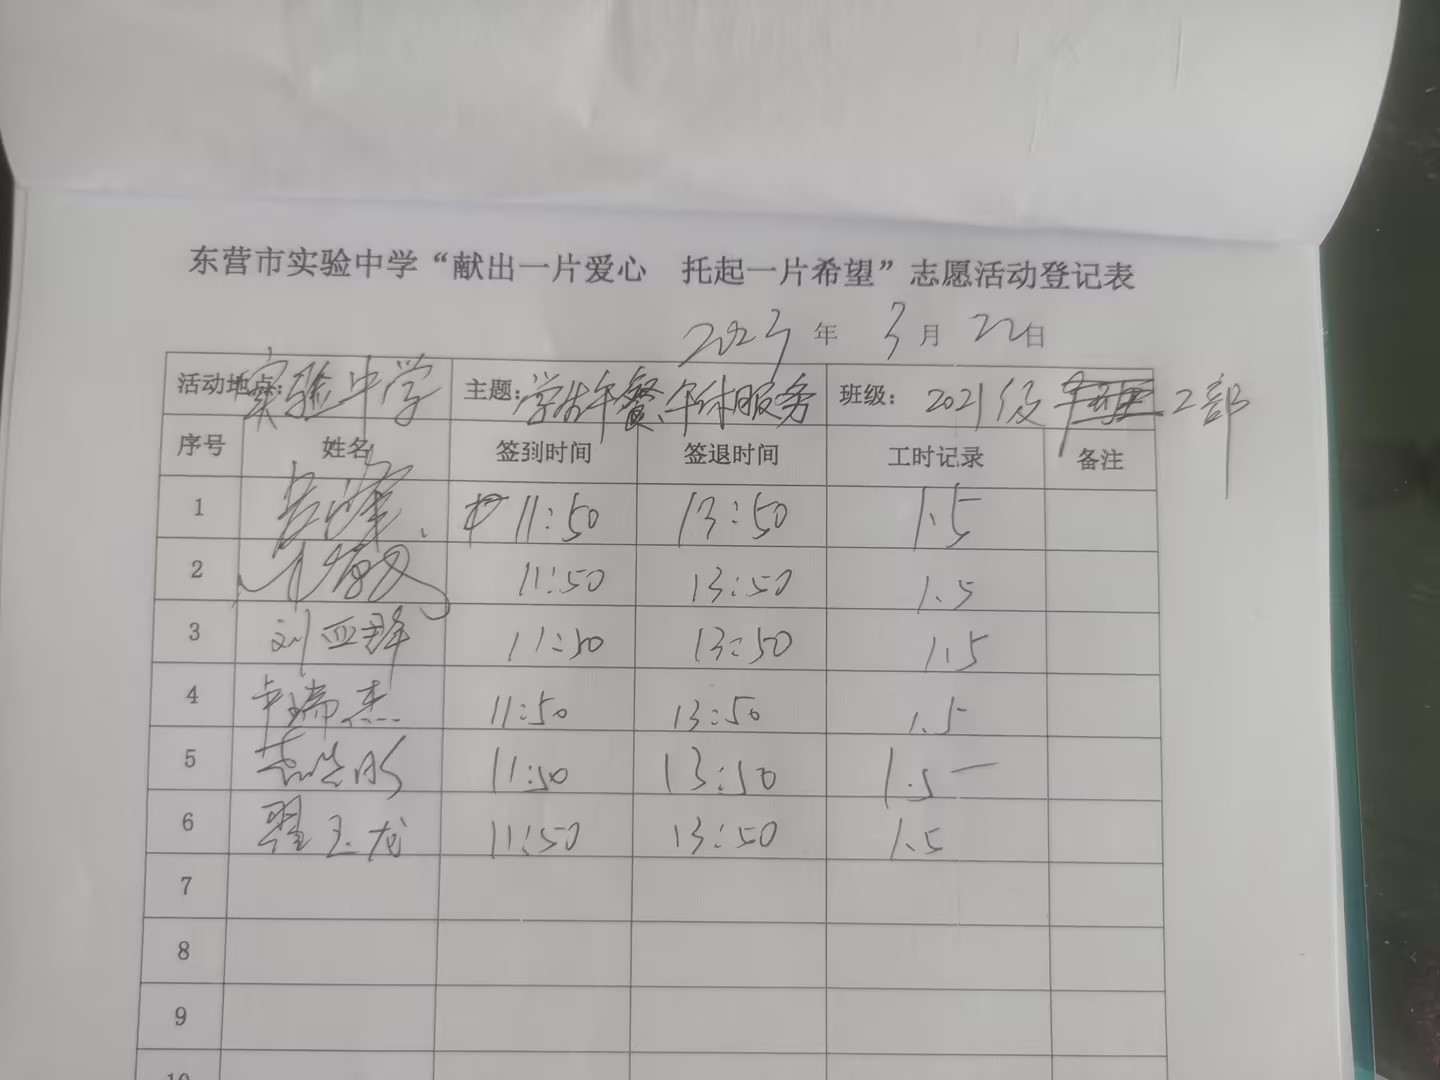 东营市实验中学“献出一片爱心 托起一片希望”志愿活动登记表
2023年 3月 22日
活动地点: 实验中学 主题: 学生午餐、午休服务 班级: 2021级 2部
序号 姓名 签到时间 签退时间 工时记录 备注
1 11:50 13:50 1.5
2 11:50 13:50 1.5
3 刘亚群 11:50 13:50 1.5
4 卞瑞杰 11:50 13:50 1.5
5 11:50 13:50 1.5
6 翟玉龙 11:50 13:50 1.5
7
8
9
10